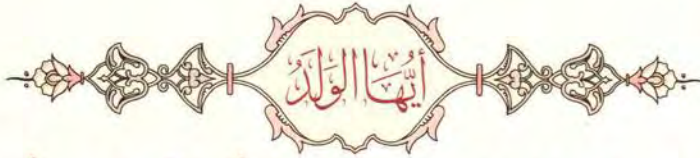 أَيُّهَا الوَلَدُ